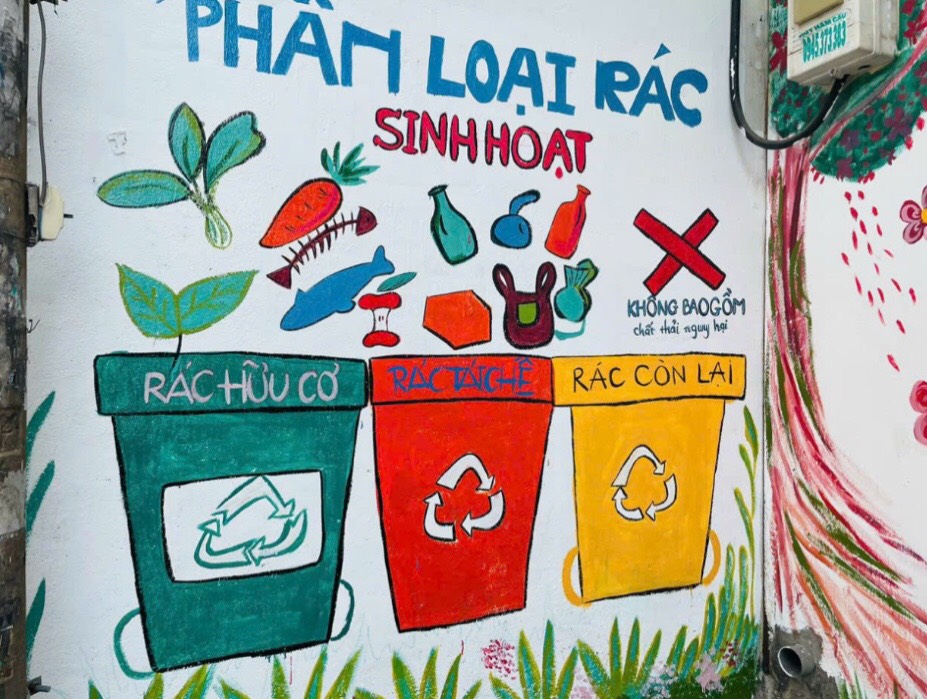 PHÂN LOẠI RÁC
SINH HOẠT
KHÔNG BAO GỒM
chất thải nguy hại
RÁC HỮU CƠ
RÁC TÁI CHẾ
RÁC CÒN LẠI
0945.373.303